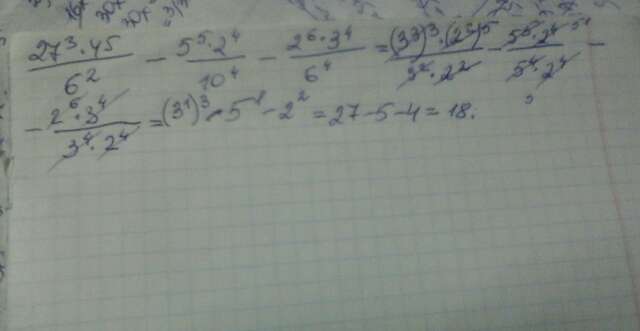 30x
27³·4⁵/6² - 5⁵·2⁴/10⁴ - 2⁶·3⁴/6⁴ = (3³)³·(2²)⁵/3²·2² - 5⁵·2⁴/5⁴·2⁴ -
- 2⁶·3⁴/3⁴·2⁴ = (3¹)³ - 5¹ - 2² = 27-5-4 = 18.